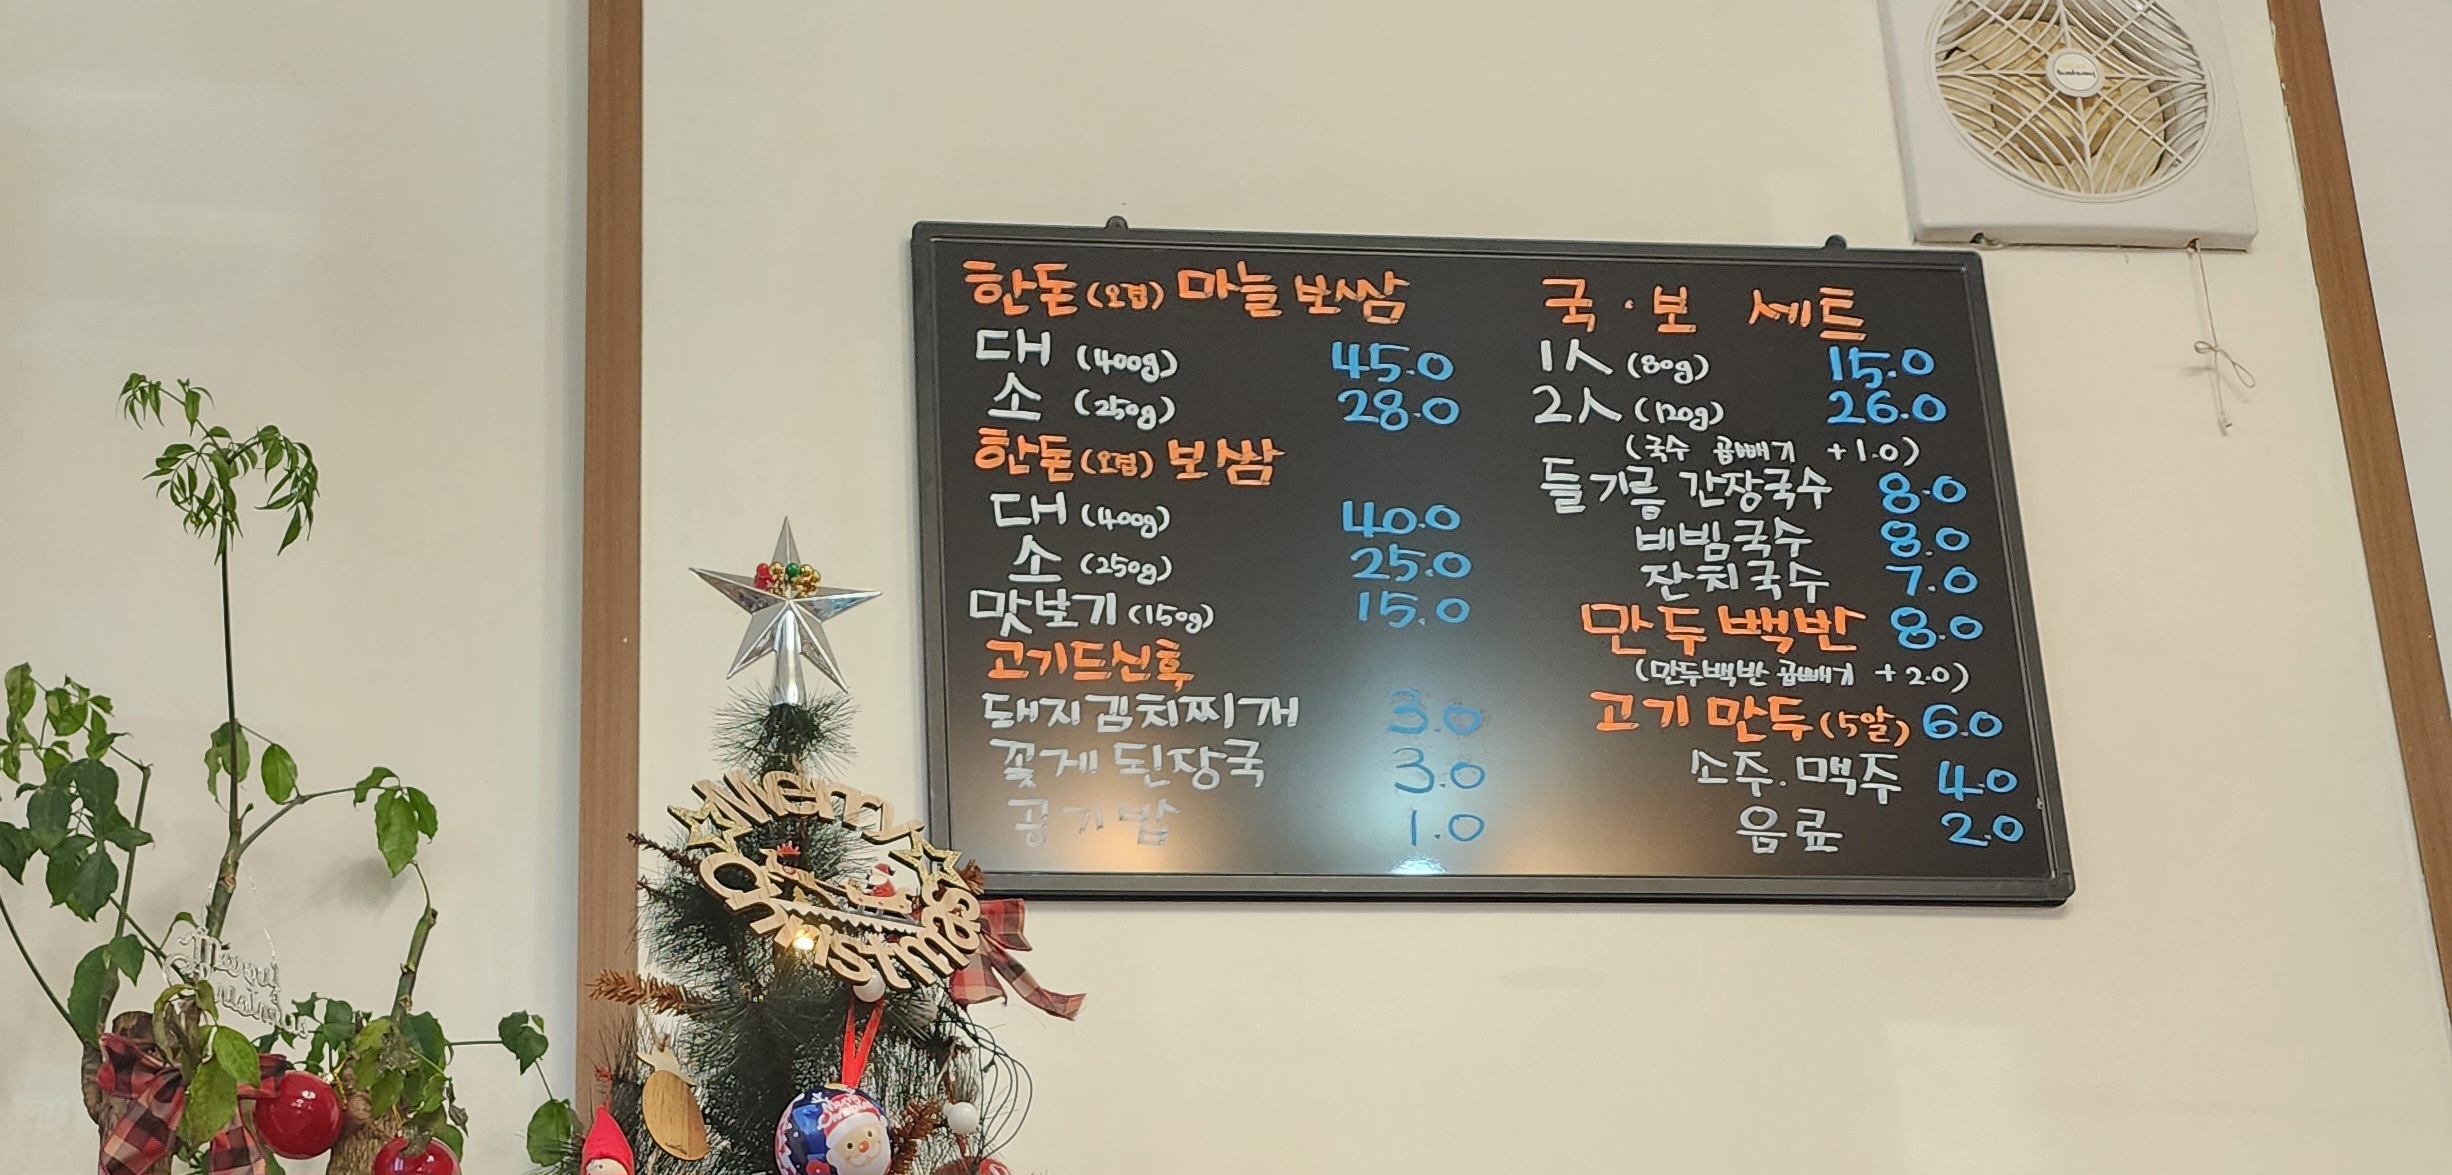 한돈(오겹) 마늘 보쌈
대 (400g) 45.0
소 (250g) 28.0
한돈(오겹) 보쌈
대 (400g) 40.0
소 (250g) 25.0
맛보기 (150g) 15.0
고기드신후
돼지김치찌개 3.0
꽃게 된장국 3.0
공기밥 1.0
국·보 세트
1人 (80g) 15.0
2人 (120g) 26.0
(국수 곱빼기 +1.0)
들기름 간장국수 8.0
비빔국수 8.0
잔치국수 7.0
만두백반 8.0
(만두백반 곱빼기 +2.0)
고기 만두 (5알) 6.0
소주.맥주 4.0
음료 2.0
Merry
Christmas